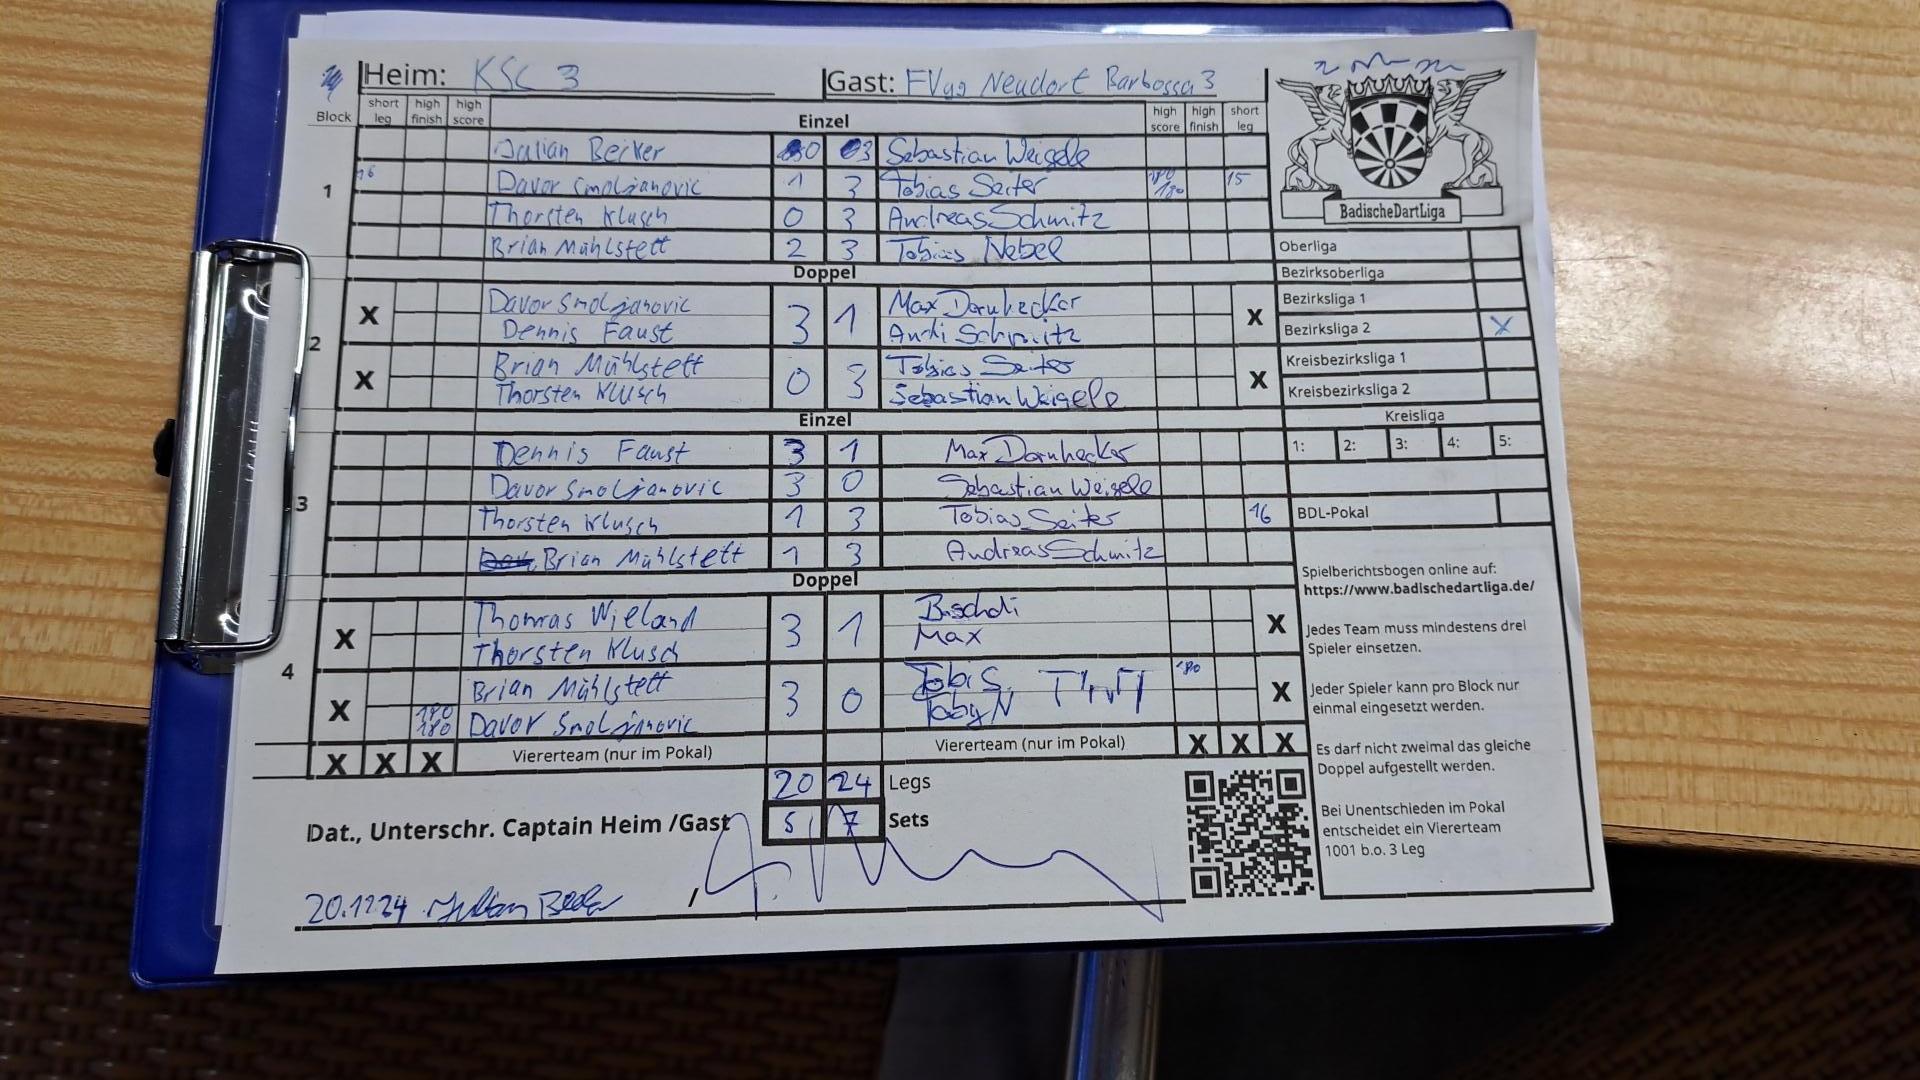 Heim: KSC 3 Gast: FVgg Neudorf Barbossa 3
Block short leg high finish high score Einzel high score high finish short leg
Julian Becker 0 3 Sebastian Weisele
1 16 Davor Smoljanovic 1 3 Tobias Seiter 180 180 15
Thorsten Klusch 0 3 Andreas Schmitz
Brian Mühlstett 2 3 Tobias Nebel
Doppel
X Davor Smoljanovic 3 1 Max Dornhecker X
2 Dennis Faust Andi Schmitz
X Brian Mühlstett 0 3 Tobias Seiter X
Thorsten Klusch Sebastian Weisele
Einzel
Dennis Faust 3 1 Max Dornhecker
3 Davor Smoljanovic 3 0 Sebastian Weisele
Thorsten Klusch 1 3 Tobias Seiter 16
Brian Mühlstett 1 3 Andreas Schmitz
Doppel
X Thomas Wieland 3 1 X
Thorsten Klusch Max
4 X Brian Mühlstett 3 0 Tobi S 180 X
180 180 Davor Smoljanovic Toby N
X X X Viererteam (nur im Pokal) Viererteam (nur im Pokal) X X X
20 24 Legs
Dat., Unterschr. Captain Heim /Gast 5 7 Sets
20.12.24 Julian Becker /
BadischeDartLiga
Oberliga
Bezirksoberliga
Bezirksliga 1
Bezirksliga 2 X
Kreisbezirksliga 1
Kreisbezirksliga 2
Kreisliga
1: 2: 3: 4: 5:
BDL-Pokal
Spielberichtsbogen online auf:
https://www.badischedartliga.de/
Jedes Team muss mindestens drei
Spieler einsetzen.
Jeder Spieler kann pro Block nur
einmal eingesetzt werden.
Es darf nicht zweimal das gleiche
Doppel aufgestellt werden.
Bei Unentschieden im Pokal
entscheidet ein Viererteam
1001 b.o. 3 Leg